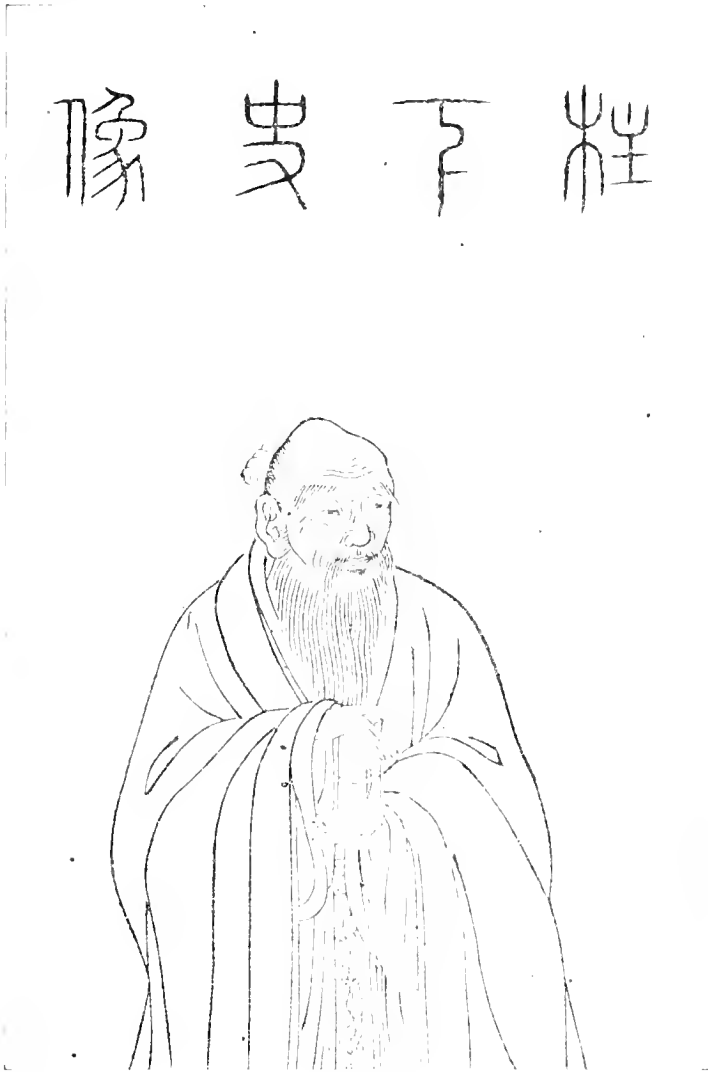 柱下史像